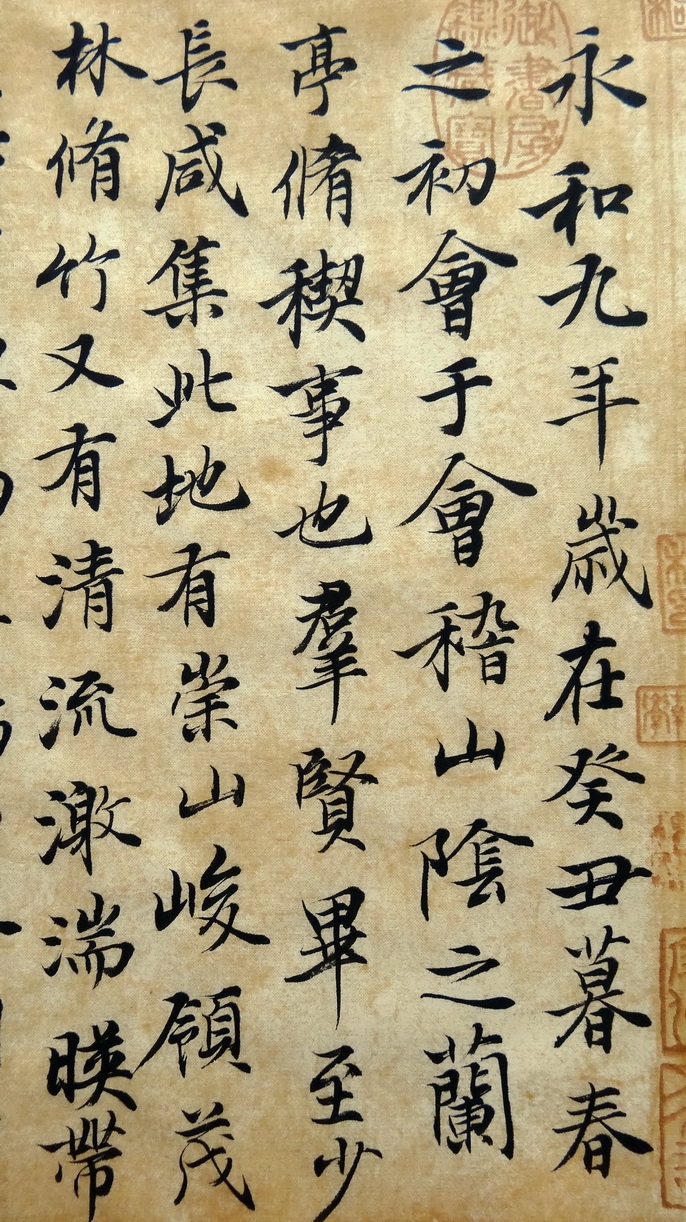 永和九年歲在癸丑暮春
之初會于會稽山陰之蘭
亭脩稧事也羣賢畢至少
長咸集此地有崇山峻領茂
林脩竹又有清流激湍暎帶
御書房鑑藏寶